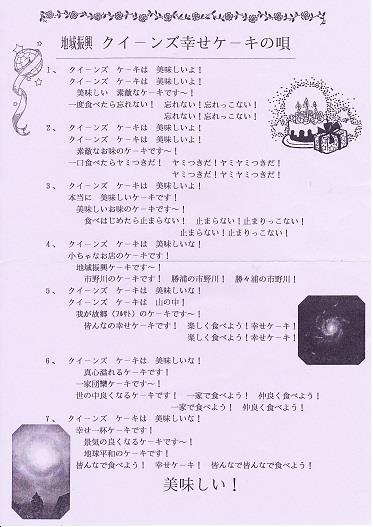 地域振興 クイーンズ幸せケーキの唄
1、 クイーンズ ケーキは 美味しいよ！
クイーンズ ケーキは 美味しいよ！
美味しい 素敵なケーキです～！
一度食べたら忘れない！ 忘れない！忘れっこない！
忘れない！忘れっこない！
2、 クイーンズ ケーキは 美味しいよ！
クイーンズ ケーキは 美味しいよ！
素敵なお味のケーキです～！
一口食べたらヤミつきだ！ ヤミつきだ！ヤミヤミつきだ！
ヤミつきだ！ヤミヤミつきだ！
3、 クイーンズ ケーキは 美味しいよ！
本当に 美味しいケーキです！
美味しいお味のケーキです～！
食べはじめたら止まらない！ 止まらない！止まりっこない！
止まらない！止まりっこない！
4、 クイーンズ ケーキは 美味しいな！
小ちゃなお店のケーキです！
地域振興ケーキです～！
市野川のケーキです！ 勝浦の市野川！ 勝々浦の市野川！
5、 クイーンズ ケーキは 美味しいな！
クイーンズ ケーキは 山の中！
我が故郷（ﾌﾙｻﾄ）のケーキです～！
皆んなの幸せケーキです！ 楽しく食べよう！幸せケーキ！
楽しく食べよう！幸せケーキ！
6、 クイーンズ ケーキは 美味しいな！
真心溢れるケーキです！
一家団欒ケーキです～！
世の中良くなるケーキです！ 一家で食べよう！ 仲良く食べよう！
一家で食べよう！ 仲良く食べよう！
7、 クイーンズ ケーキは 美味しいな！
幸せ一杯ケーキです！
景気の良くなるケーキです～！
地球平和のケーキです！
皆んなで食べよう！ 幸せケーキ！ 皆んなで食べよう！皆んなで食べよう！
美味しい！